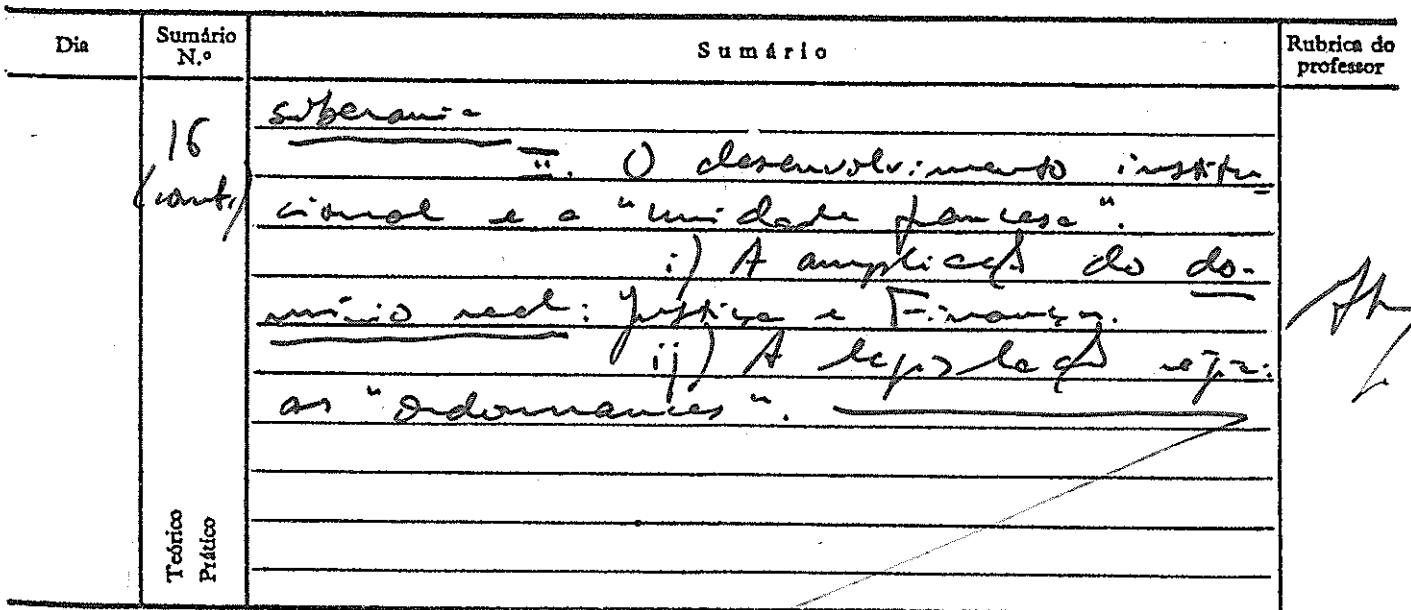 Dia
Sumário N.º
Sumário
Rubrica do professor
16 (cont.)
soberania
II. O desenvolvimento institu
cional e a "unidade francesa".
i) A ampliação do do-
mínio real: Justiça e Finanças.
ii) A legislação régia:
as "ordonnances".
Teórico
Prático